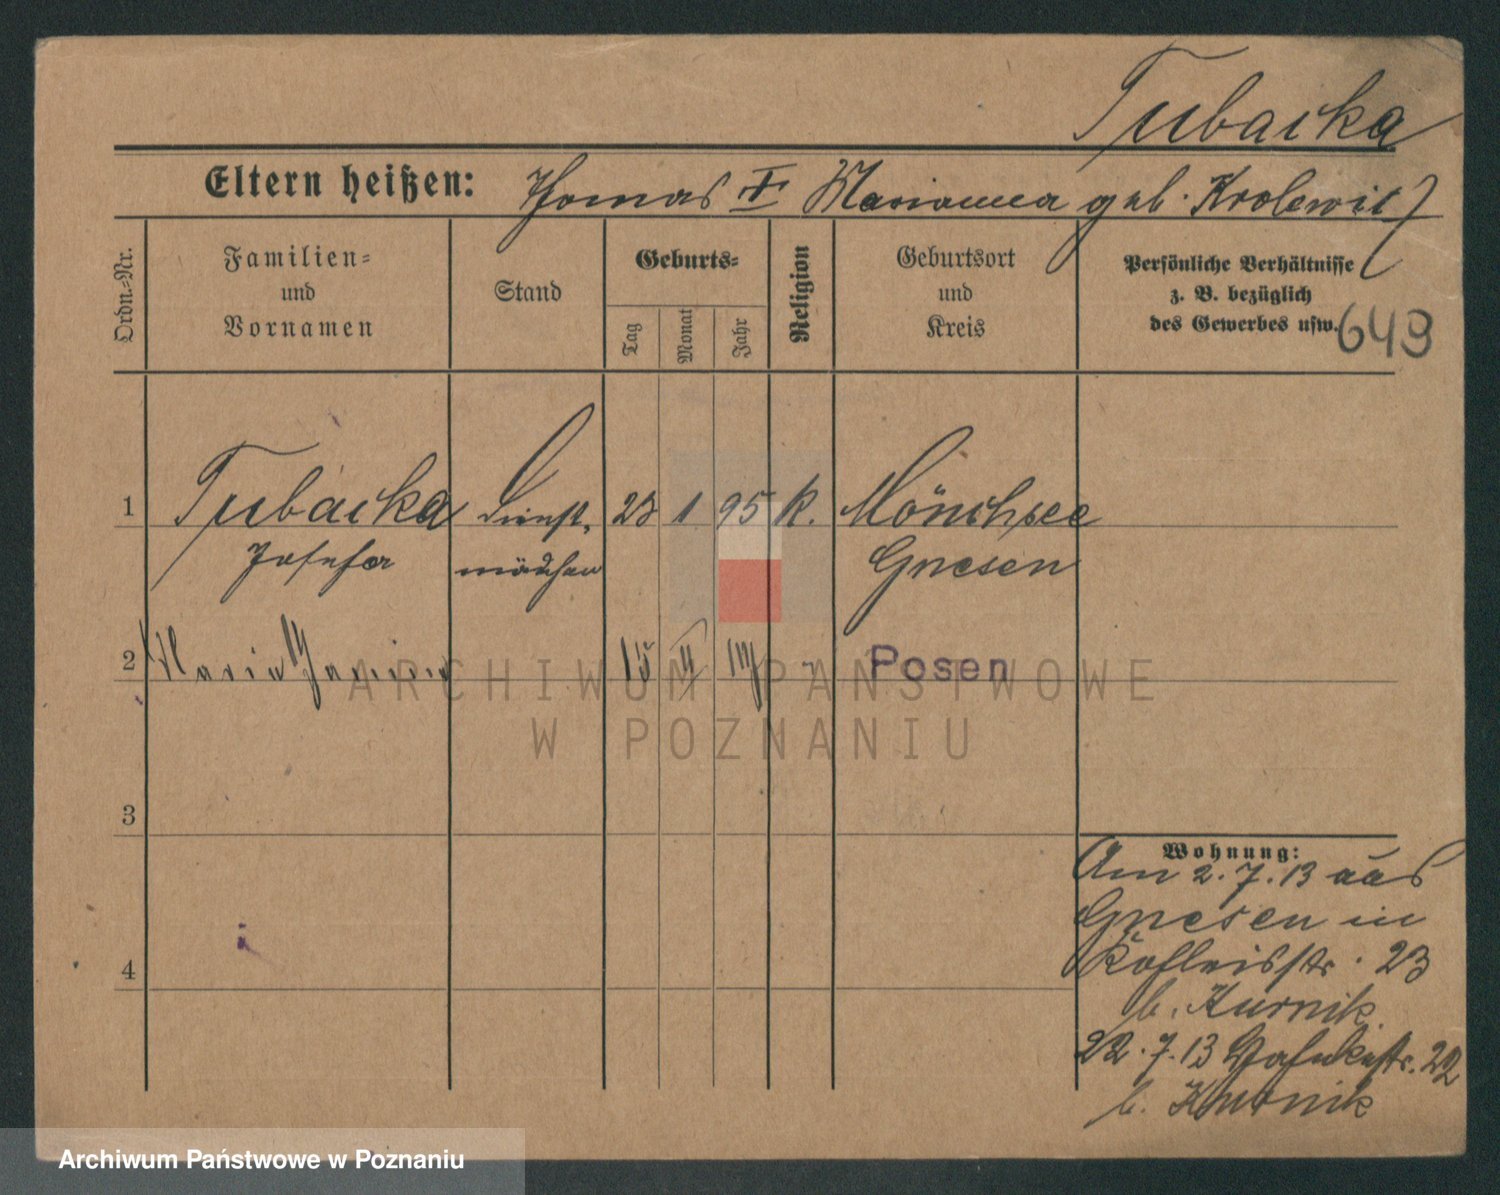 Tubacka
Eltern heißen: Thomas Marianna geb. Krolewic
Ordn.-Nr.
Familien-
und
Vornamen
Stand
Geburts-
Tag
Monat
Jahr
Religion
Geburtsort
und
Kreis
Persönliche Verhältnisse
z. B. bezüglich
des Gewerbes usw.
649
1 Tubacka Dienst- 23 1 95 k. Mönchsee
Josefa mädchen Gnesen
2 Maria Janina 15 II Posen
3
4
Wohnung:
Am 2.7.13 aus
Gnesen in
23
b. Kurnik
22.7.13 22
b. Kurnik
ARCHIWUM PAŃSTWOWE
W POZNANIU
Archiwum Państwowe w Poznaniu